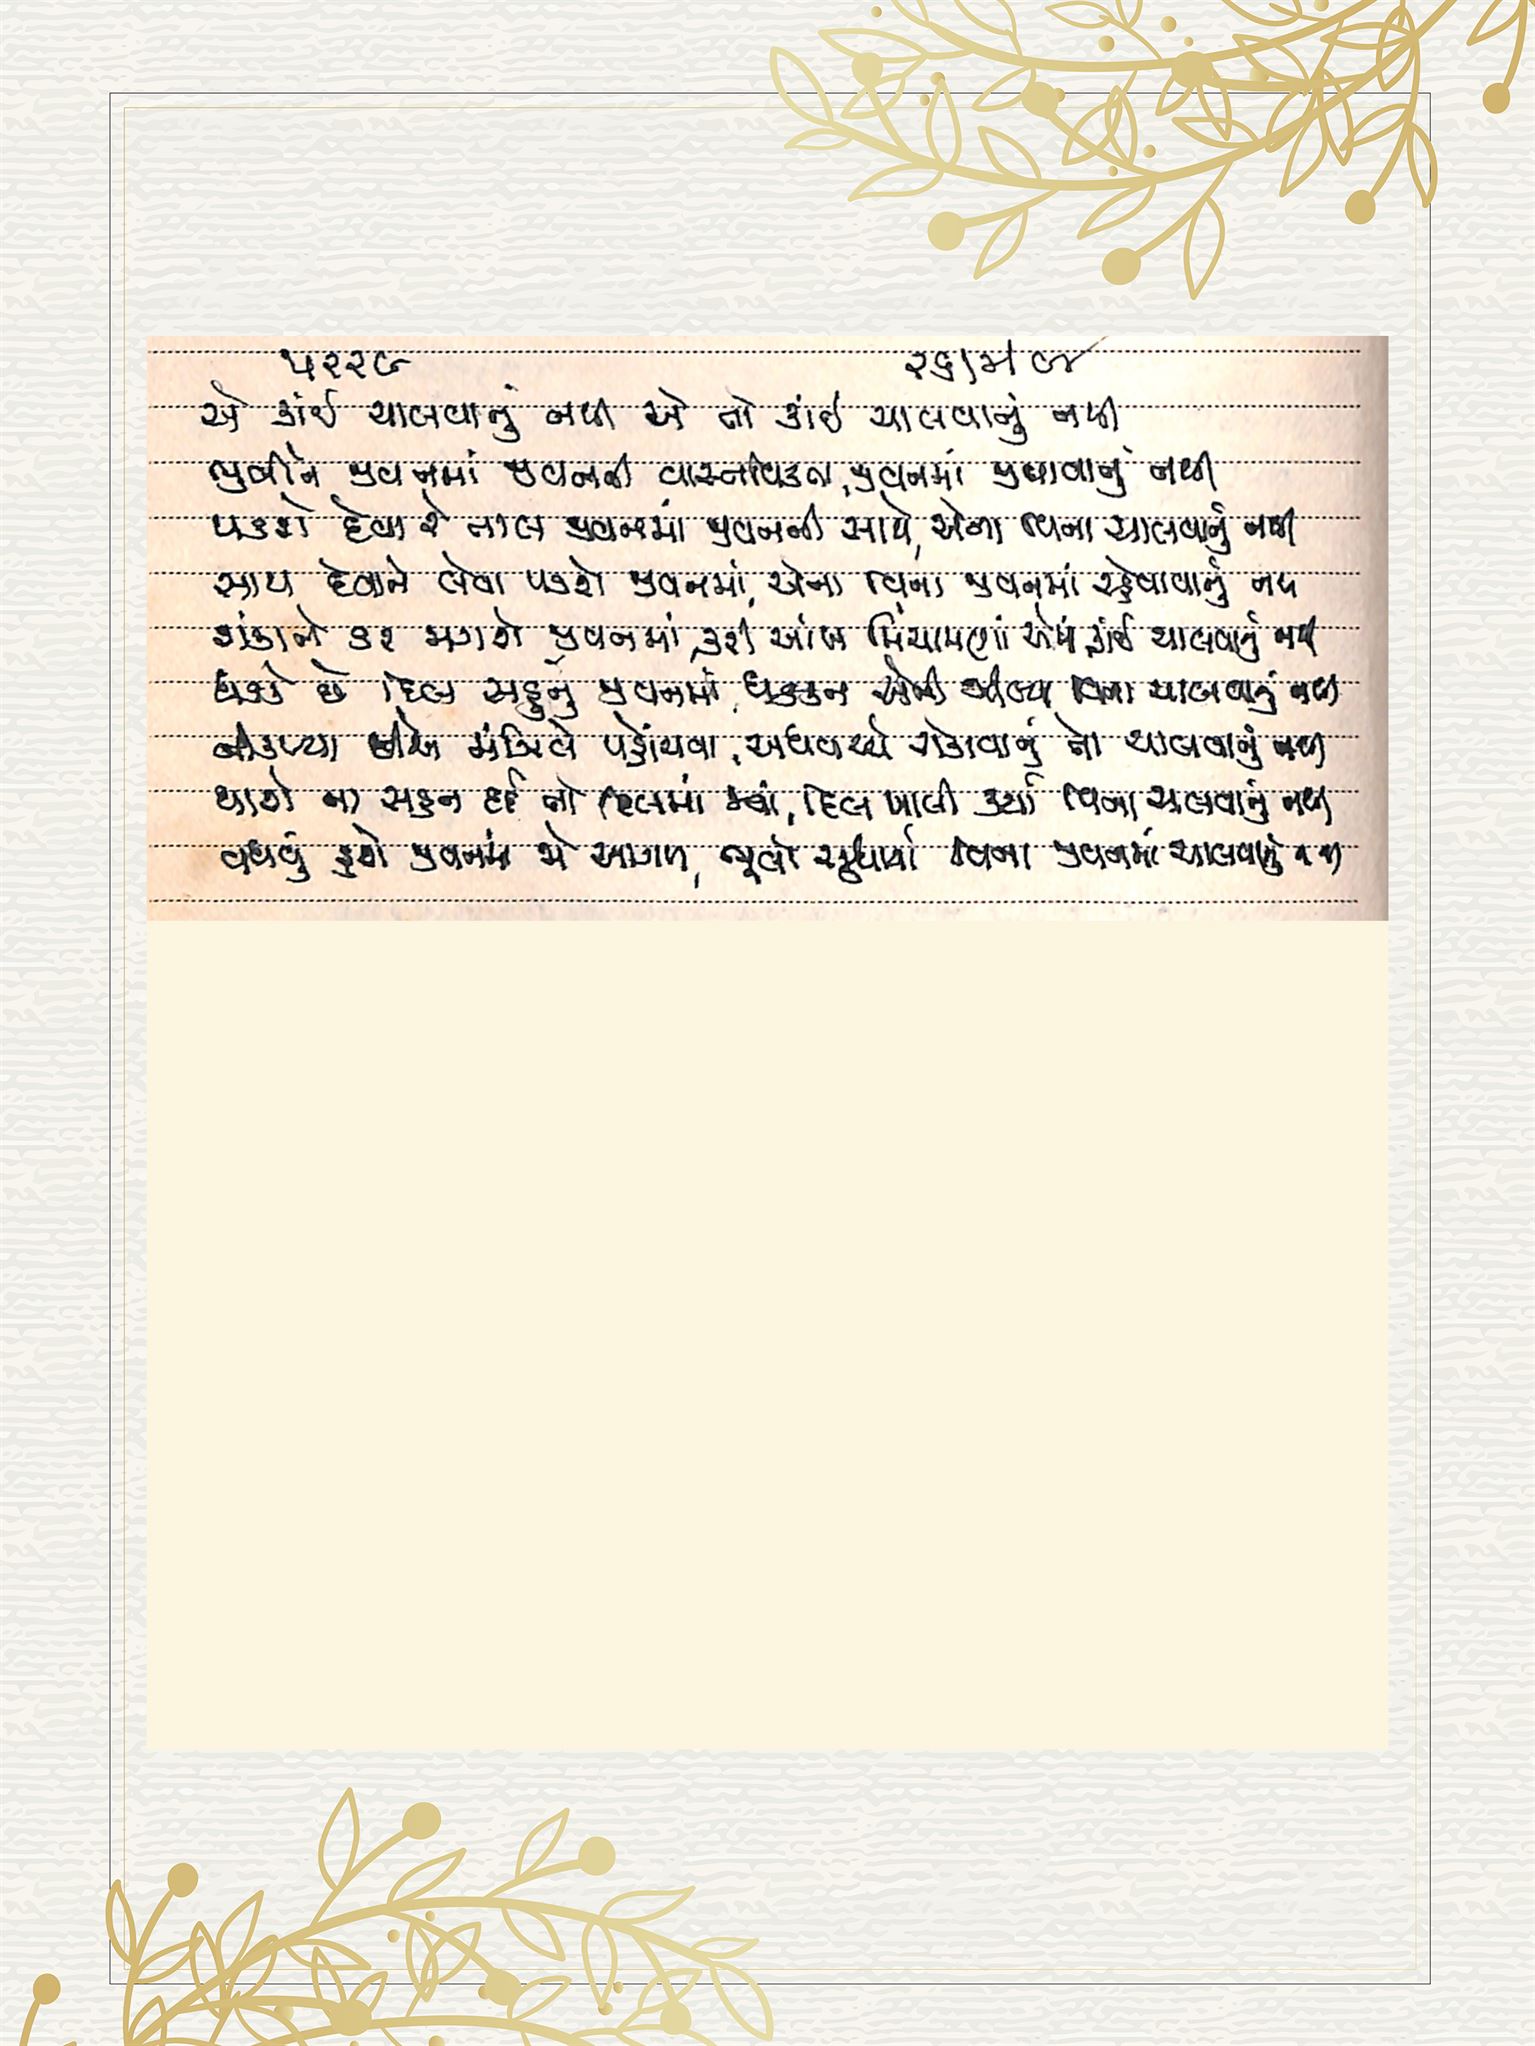 ૫૨૨૯
એ કાંઈ ચાલવાનું નથી એ તો કાંઈ ચાલવાનું નથી
ભુલીને જીવનમાં જીવનની વાસ્તવિકતા, જીવનમાં જીવાવાનું નથી
પડશે દેવા રે તાલ જીવનમાં જીવનની સાથે, એના વિના ચાલવાનું નથી
સાથ દેવાને લેવા પડશે જીવનમાં, એના વિના જીવનમાં રહેવાવાનું નથ
શંકાને કર મગશે જીવનમાં, કરી આંખ મિંચામણાં એમાં કાંઈ ચાલવાનું નથી
ધડકે છે દિલ સહુનું જીવનમાં, ધડકન એની ઝીલ્યા વિના ચાલવાનું નથી
નીકળ્યા છીએ મંઝિલે પહોંચવા, અધવચ્ચે રોકાવાનું તો ચાલવાનું નથી
થાશે ના સહન દર્દ તો દિલમાં જ્યાં, દિલ ખાલી કર્યા વિના ચાલવાનું નથી
વધવું હશે જીવનમાં જે આગળ, ભૂલો સુધાર્યા વિના જીવનમાં ચાલવાનું નથી